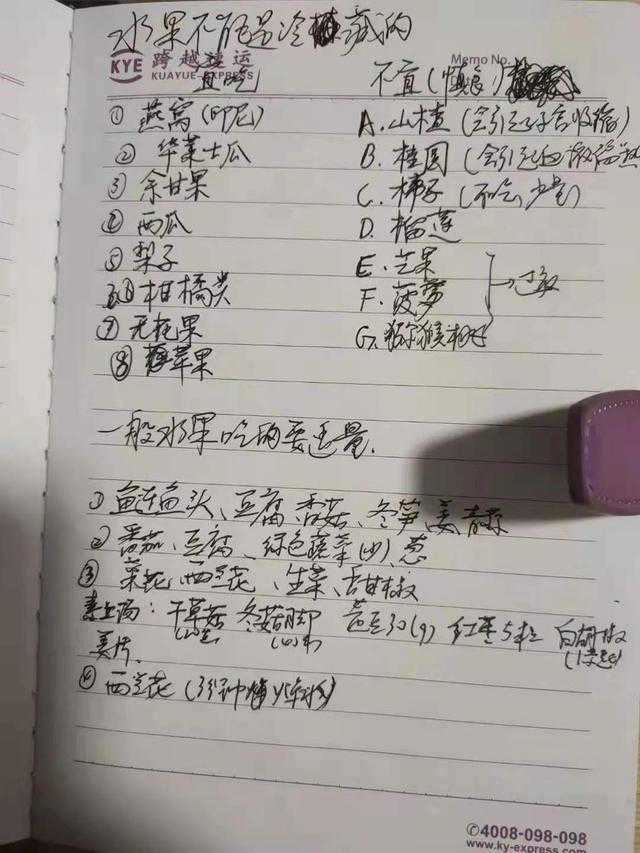 水果不能是冷藏的
KYE 跨越速运
KUAYUE-EXPRESS
Memo No.
宜吃 不宜(慎食)
① 燕窝(印尼) A. 山楂(会引起子宫收缩)
② 华莱士瓜 B. 桂圆(会引起
③ 余甘果 C. 柿子(不吃,少量)
④ 西瓜 D. 榴莲
⑤ 梨子 E. 芒果
⑥ 柑橘类 F. 菠萝 过敏
⑦ 无花果 G. 猕猴桃
⑧ 苹果
一般水果吃的要适量.
① 鱼连鱼头、豆腐、香菇、冬笋、姜、青蒜
② 番茄、豆腐、绿色蔬菜(少)、葱
③ 菜花、西兰花、生菜、甜椒
素上汤: 干草菇 冬菇脚 黄豆30(g) 红枣5粒 白胡椒
姜片.
④ 西兰花(3分钟焯水)
✆4008-098-098
www.ky-express.com